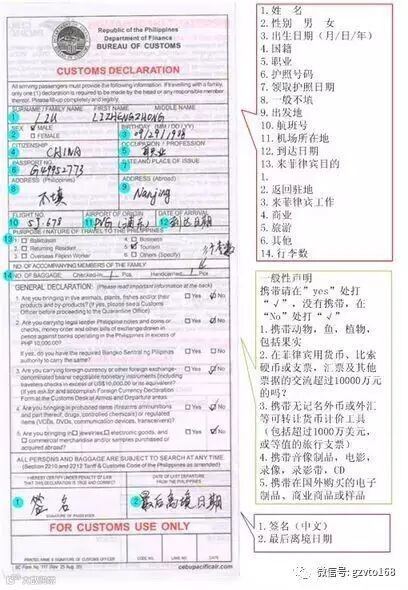 Republic of the Philippines
Department of Finance
BUREAU OF CUSTOMS
CUSTOMS DECLARATION
All arriving passengers must provide the following information. If travelling with a family,
only one (1) declaration is required to be made by the head or any responsible member
thereof. Please fill up completely and legibly.
SURNAME / FAMILY NAME FIRST NAME MIDDLE NAME
1 LIU LIZHENGZHONG
SEX MALE BIRTHDAY (MM / DD / YY)
2 FEMALE 3 09/29/1988
CITIZENSHIP OCCUPATION / PROFESSION
4 CHINA 5 职业
PASSPORT NO. DATE AND PLACE OF ISSUE
6 G49952773 7
ADDRESS (Philippines) ADDRESS (Abroad)
8 不填 9 Nanjing
FLIGHT NO. AIRPORT OF ORIGIN DATE OF ARRIVAL
10 5J 678 11 PVG (浦东) 12 到达日期
PURPOSE / NATURE OF TRAVEL TO THE PHILIPPINES
13 1 Balikbayan 4 Business
2 Returning Resident 5
3 Overseas Filipino Worker 6 Others (Specify)
行李数
NO. OF ACCOMPANYING MEMBERS OF THE FAMILY
14 NO. OF BAGGAGE: Checked-in 1 Pcs. Handcarried 1 Pcs.
GENERAL DECLARATION: (Please read important information at the back)
1. Are you bringing in live animals, plants, fishes and/or their
products and by-products? (If yes, please see a Customs
Officer before proceeding to the Quarantine Office).
Yes No
2. Are you carrying legal tender Philippine notes and coins or
checks, money order and other bills of exchange drawn in
pesos against banks operating in the Philippines in excess of
PHP 10,000.00?
Yes No
If yes, do you have the required Bangko Sentral ng Pilipinas
authority to carry the same?
Yes No
3. Are you carrying foreign currency or other foreign exchange-
denominated bearer negotiable monetary instruments (including
travellers checks in excess of US$10,000.00 or its equivalent)?
If yes ask for and accomplish Foreign Currency Declaration
Form at the Customs Desk at Arrival and Departure areas.
Yes No
4. Are you bringing in prohibited items (firearms ammunitions
and part thereof, drugs, controlled chemicals) or regulated
items (VCDs, DVDs, communication devices, transceivers)?
Yes No
5. Are you bringing in jewelry, electronic goods, and
commercial merchandise and/or samples purchased or
acquired abroad?
Yes No
ALL PERSONS AND BAGGAGE ARE SUBJECT TO SEARCH AT ANY TIME
(Section 2210 and 2212 Tariff & Customs Code of the Philippines as amended)
I HEREBY CERTIFY UNDER PENALTY OF LAW
THAT THIS DECLARATION IS TRUE AND CORRECT
DATE OF LAST DEPARTURE
FROM THE PHILIPPINES
1 签名 2 最后离境日期
SIGNATURE OF PASSENGER
FOR CUSTOMS USE ONLY
cebupacificair.com
1.姓 名
2.性别 男 女
3.出生日期（月/日/年）
4.国籍
5.职业
6.护照号码
7.领取护照日期
8.一般不填
9.出发地
10.航班号
11.机场所在地
12.到达日期
13.来菲律宾目的
1.
2.返回驻地
3.来菲律宾工作
4.商业
5.旅游
6.其他
14.行李数
一般性声明
携带请在"yes"处打
"√"，没有携带，在
"No"处打"√"
1.携带动物，鱼，植物，
包括果实
2.在菲律宾用货币、比索
硬币或支票，汇票及其他
票据的交流超过10000万元
的吗？
3.携带无记名外币或外汇
等可转让货币计价工具
（包括超过1000万美元，
或等值的旅行支票）
4.携带音像制品，电影，
录像，录影带，CD
5.携带在国外购买的电子
制品、商业商品或样品
1.签名（中文）
2.最后离境日期
微信号: gzvto168